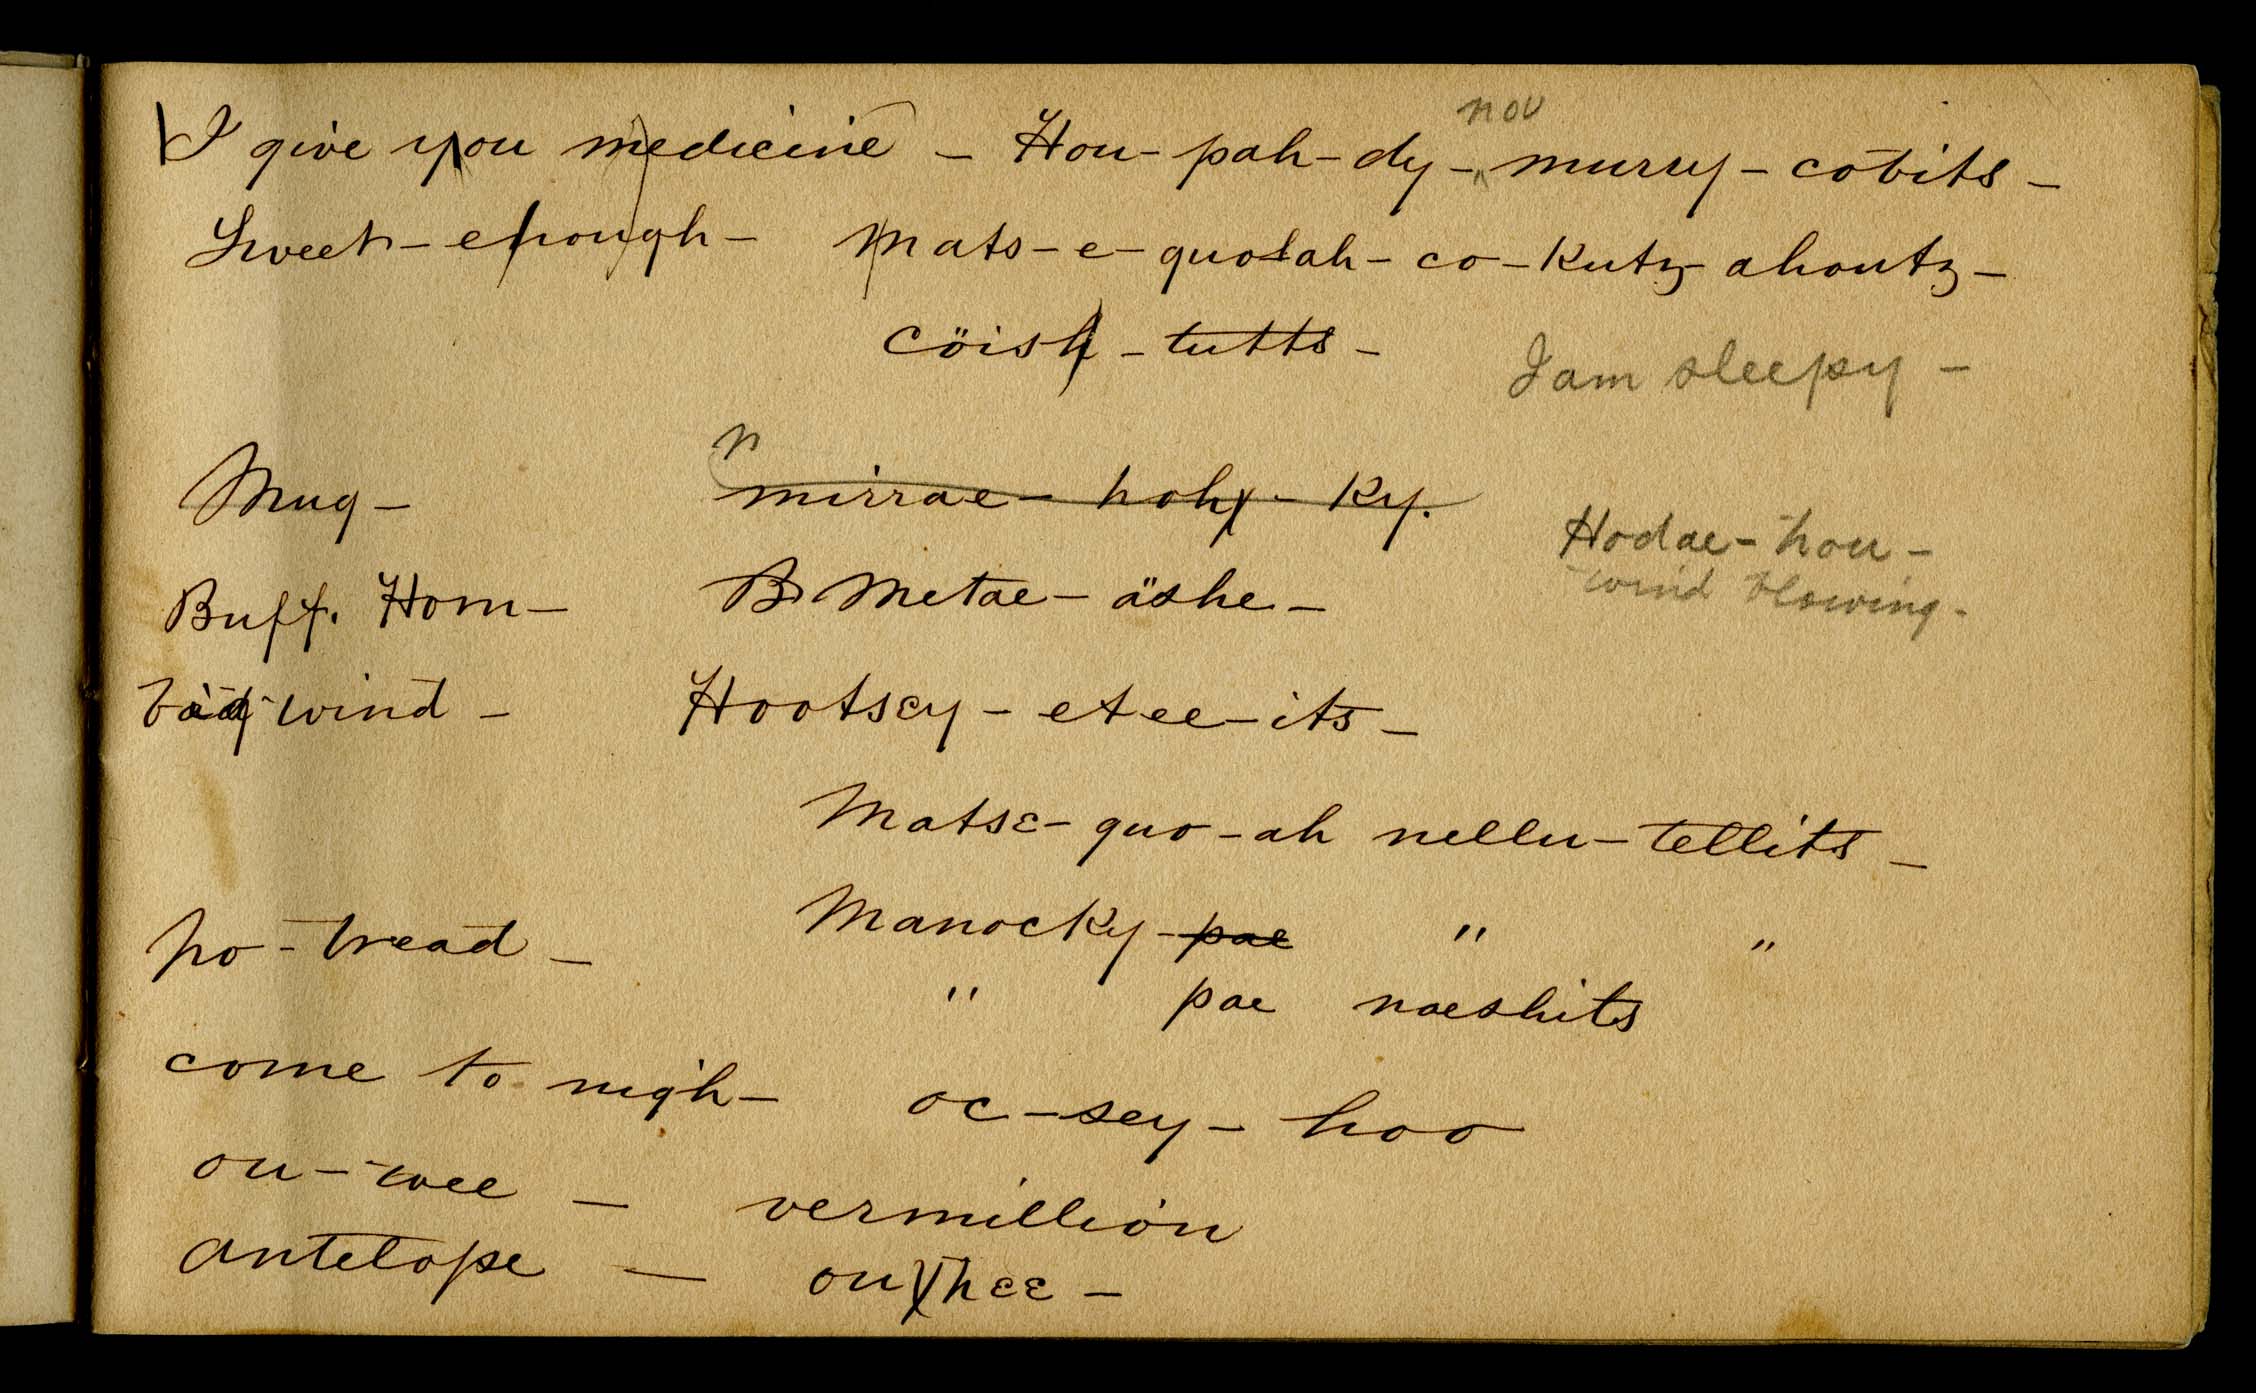 nov
I give you medicine - Hou - pah - dy - murry - cobits -
Sweet - enough - Mats - e - quosah - co - Kutz ahoutz -
cöish - tutts -
I am sleepy -
n
Mug - mirrae - hoh - Ky.
Hodae - hou -
wind blowing -
Buff. Horn - Metae - äshe -
wind - Hootsey - etee - its -
Matse - quo - ah nellu - tellits -
no - bread - Manocky - pae " "
" pae naeshits
come to nigh - oc - sey - hoo
ou - wee - vermillion
antelope - ou hee -